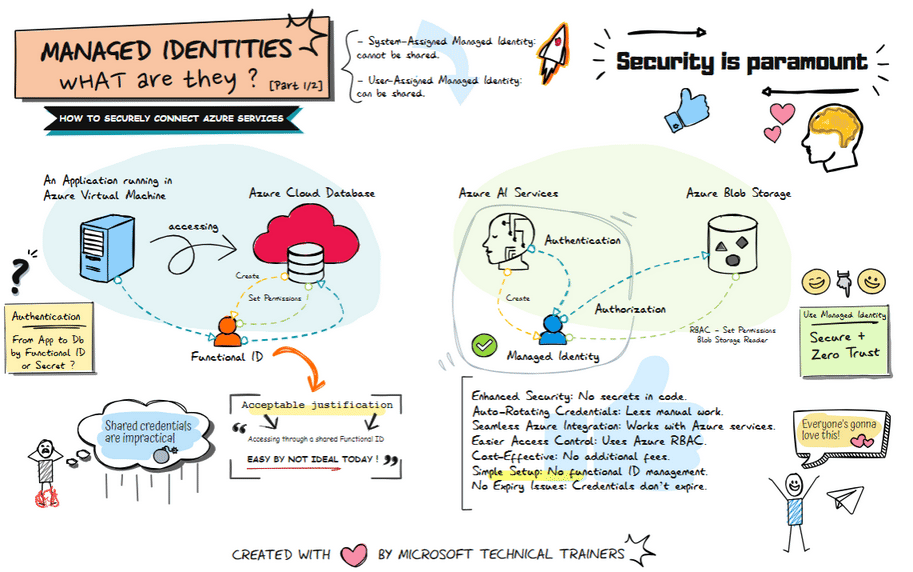 MANAGED IDENTITIES
WHAT are they ? [Part 1/2]
HOW TO SECURELY CONNECT AZURE SERVICES
- System-Assigned Managed Identity:
cannot be shared.
- User-Assigned Managed Identity:
can be shared.
Security is paramount
An Application running in
Azure Virtual Machine
Azure Cloud Database
accessing
Create
Set Permissions
Functional ID
?
Authentication
From App to Db
by Functional ID
or Secret ?
Azure AI Services
Azure Blob Storage
Authentication
Create
Authorization
RBAC - Set Permissions
Blob Storage Reader
Managed Identity
Use Managed Identity
Secure +
Zero Trust
Shared credentials
are impractical
Acceptable justification
Accessing through a shared Functional ID
EASY BY NOT IDEAL TODAY !
Enhanced Security: No secrets in code.
Auto-Rotating Credentials: Less manual work.
Seamless Azure Integration: Works with Azure services.
Easier Access Control: Uses Azure RBAC.
Cost-Effective: No additional fees.
Simple Setup: No functional ID management.
No Expiry Issues: Credentials don't expire.
Everyone's gonna
love this!
CREATED WITH BY MICROSOFT TECHNICAL TRAINERS